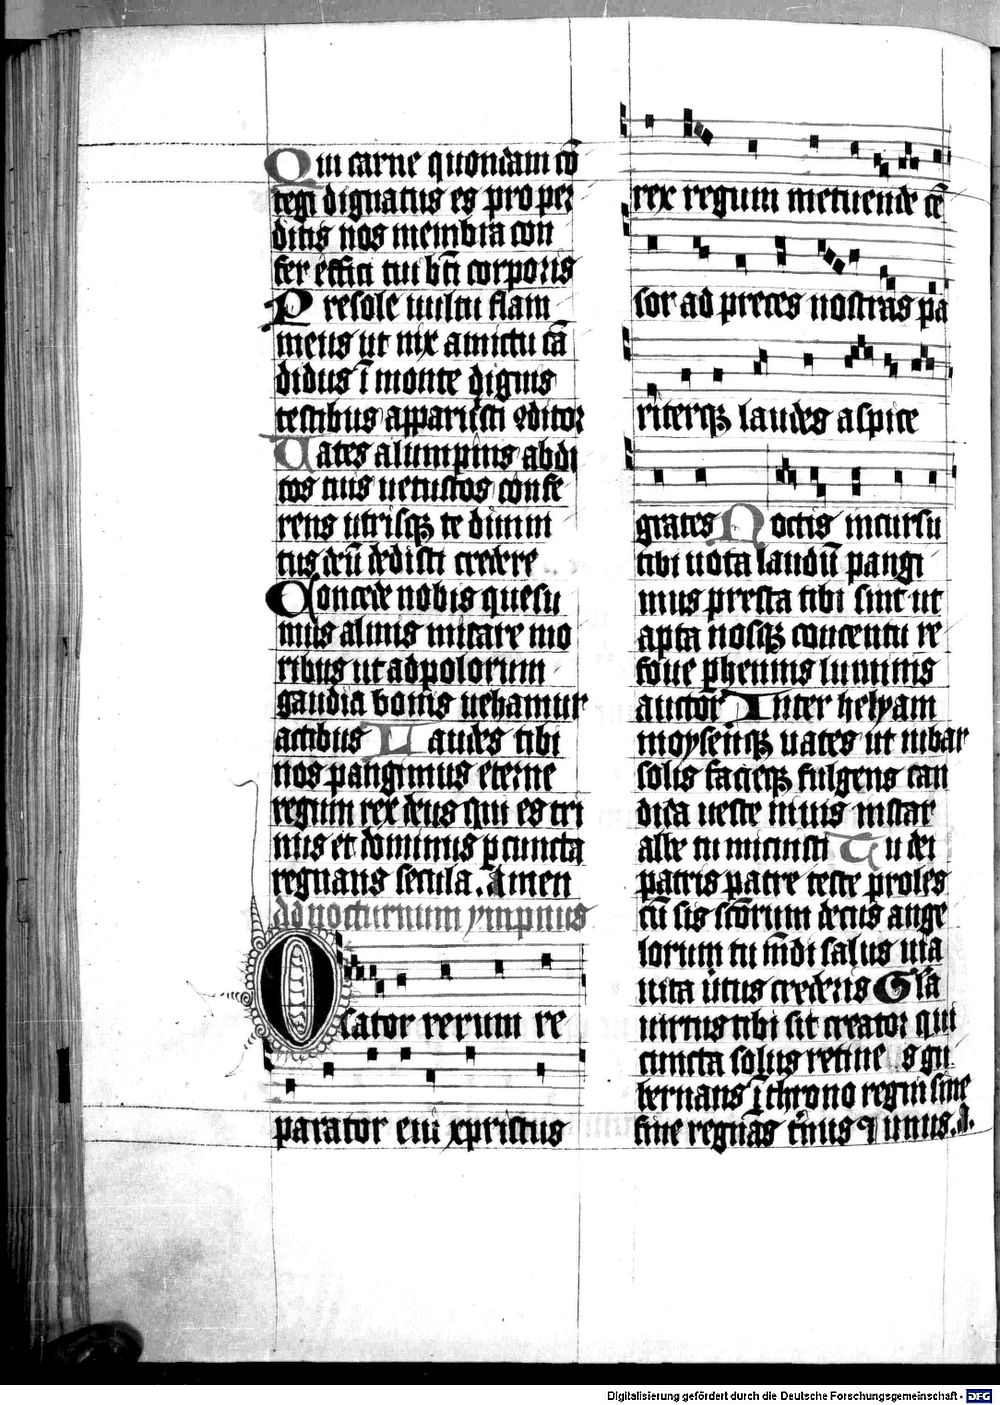 Qui carne quondam cō
tegi dignatus es pro per
ditis nos membra con
fer effici tui bt̄i corporis
Presole uultu flam
meus ut nix amictu cā
didus ī monte dignis
testibus apparuisti ꝯditor
Uates alumpnis abdi
tos tuis uetustos confe
rens utrisqꝫ te diuini
tus deū dedisti credere
Concede nobis quesu
mus alinis micare mo
ribus ut ad polorum
gaudia bonis uehamur
actibus Laudes tibi
nos pangimus eterne
regum rex deus qui es tri
nus et dominus ꝑ cuncta
regnans secula. Amen
ad nocturnum ympnus
Osator rerum re
parator eui xprictus
rex regum metuende cē
sor ad preces nostras pa
riterqꝫ laudes aspice
grates Noctis incursu
tibi uota laudū pangi
mus presta tibi sint ut
apta nosqꝫ concentu re
foue ꝑhennis luminis
auctor Inter helyam
moysenqꝫ uates ut iubar
solis facieqꝫ fulgens can
dida ueste niuis instar
albe tu micuisti Tu dei
patris patre teste proles
cū sis sc̄orum decus ange
lorum tu m̄di salus uia
uita uirtus crederis Gl̄a
uirtus tibi sit creator qui
cuncta solus retine s gu
bernans ī throno regni sine
fine regnās t̄nus ⁊ unus. A.
Digitalisierung gefördert durch die Deutsche Forschungsgemeinschaft - DFG